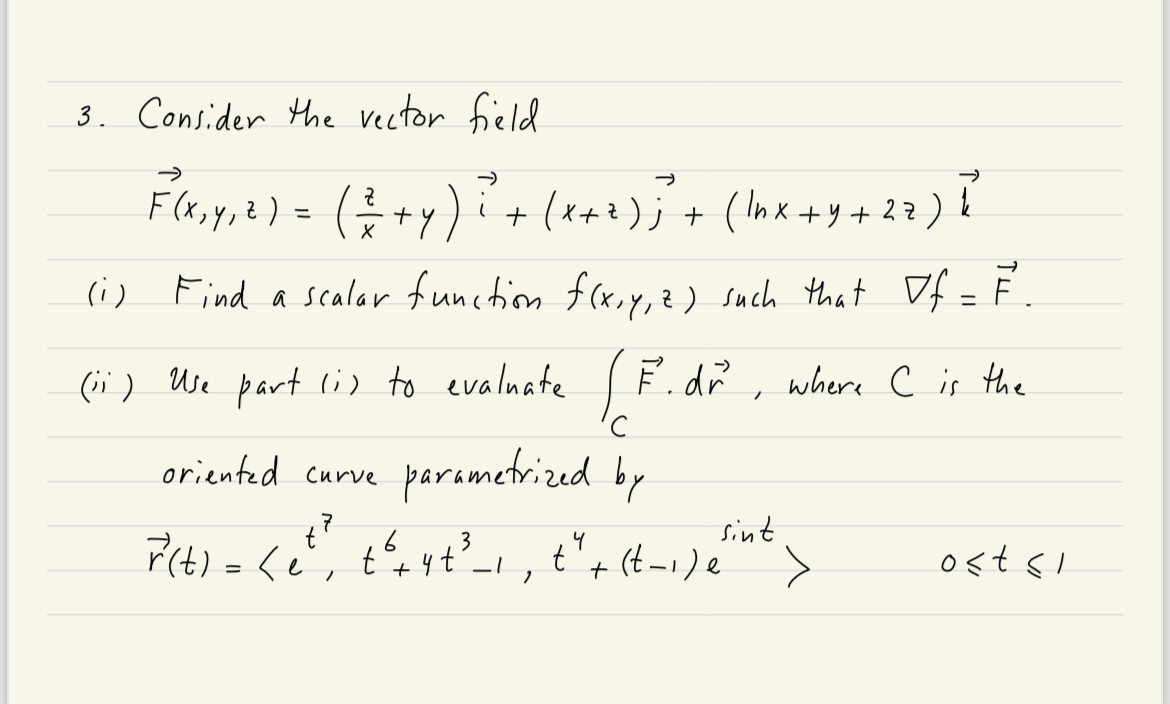 3. Consider the vector field
F⃗(x,y,z) = (z/x + y) i⃗ + (x+z) j⃗ + (ln x + y + 2z) k⃗
(i) Find a scalar function f(x,y,z) such that ∇f = F⃗.
(ii) Use part (i) to evaluate ∫_C F⃗. dr⃗, where C is the
oriented curve parametrized by
r⃗(t) = <e^(t^7), t^6 + 4t^3 - 1, t^4 + (t-1)e^(sint)> 0 ≤ t ≤ 1